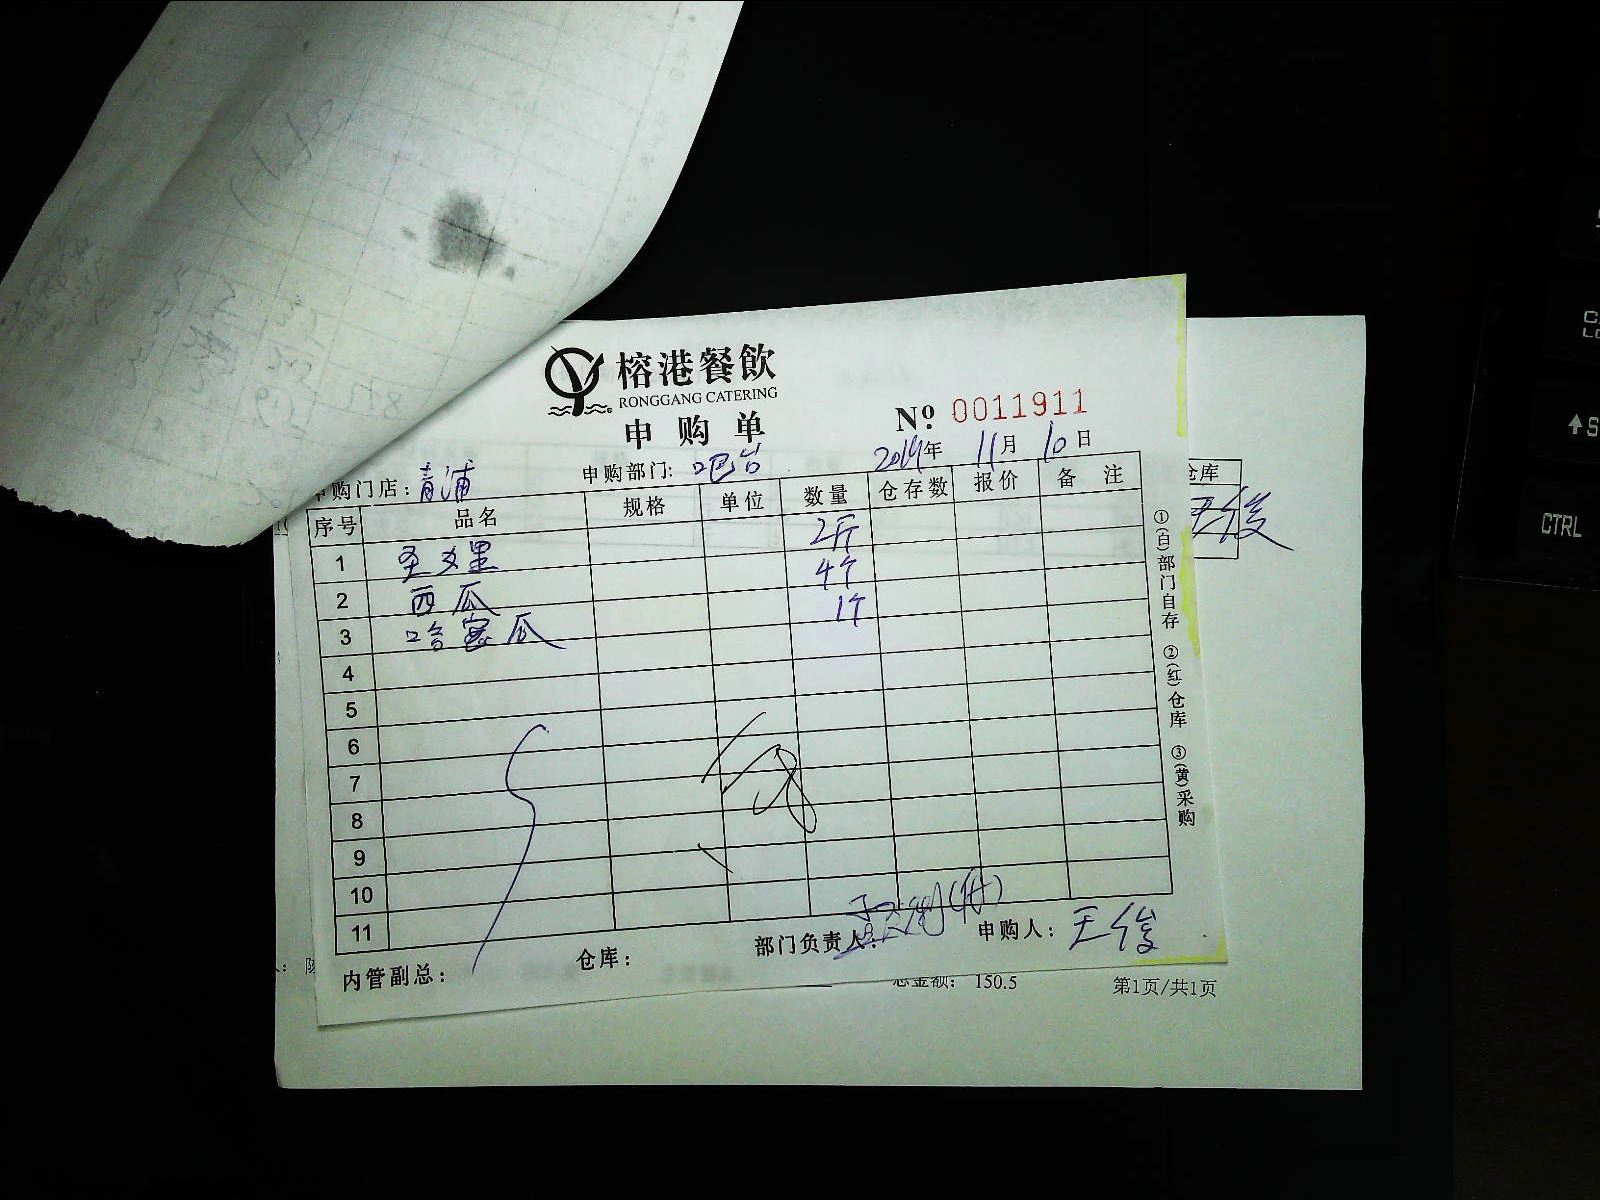 榕港餐飲
RONGGANG CATERING
申购单
№ 0011911
申购门店：青浦 申购部门：吧台 2014年 11月 10日
序号 品名 规格 单位 数量 仓存数 报价 备注
1 圣女里 2斤
2 西瓜 4个
3 哈密瓜 1个
4
5
6
7
8
9
10
11
内管副总： 仓库： 部门负责人： 申购人：王俊
①(白)部门自存 ②(红)仓库 ③(黄)采购
仓库
王俊
总金额： 150.5 第1页/共1页
CTRL